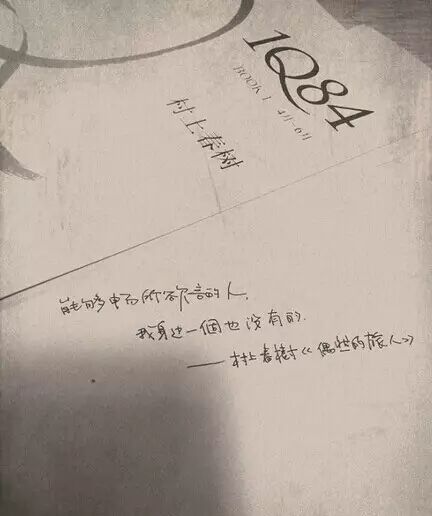 1Q84
BOOK 1 4月-6月
村上春树
能够畅所欲言的人,
我身边一個也没有的.
——村上春樹《偶然的旅人》